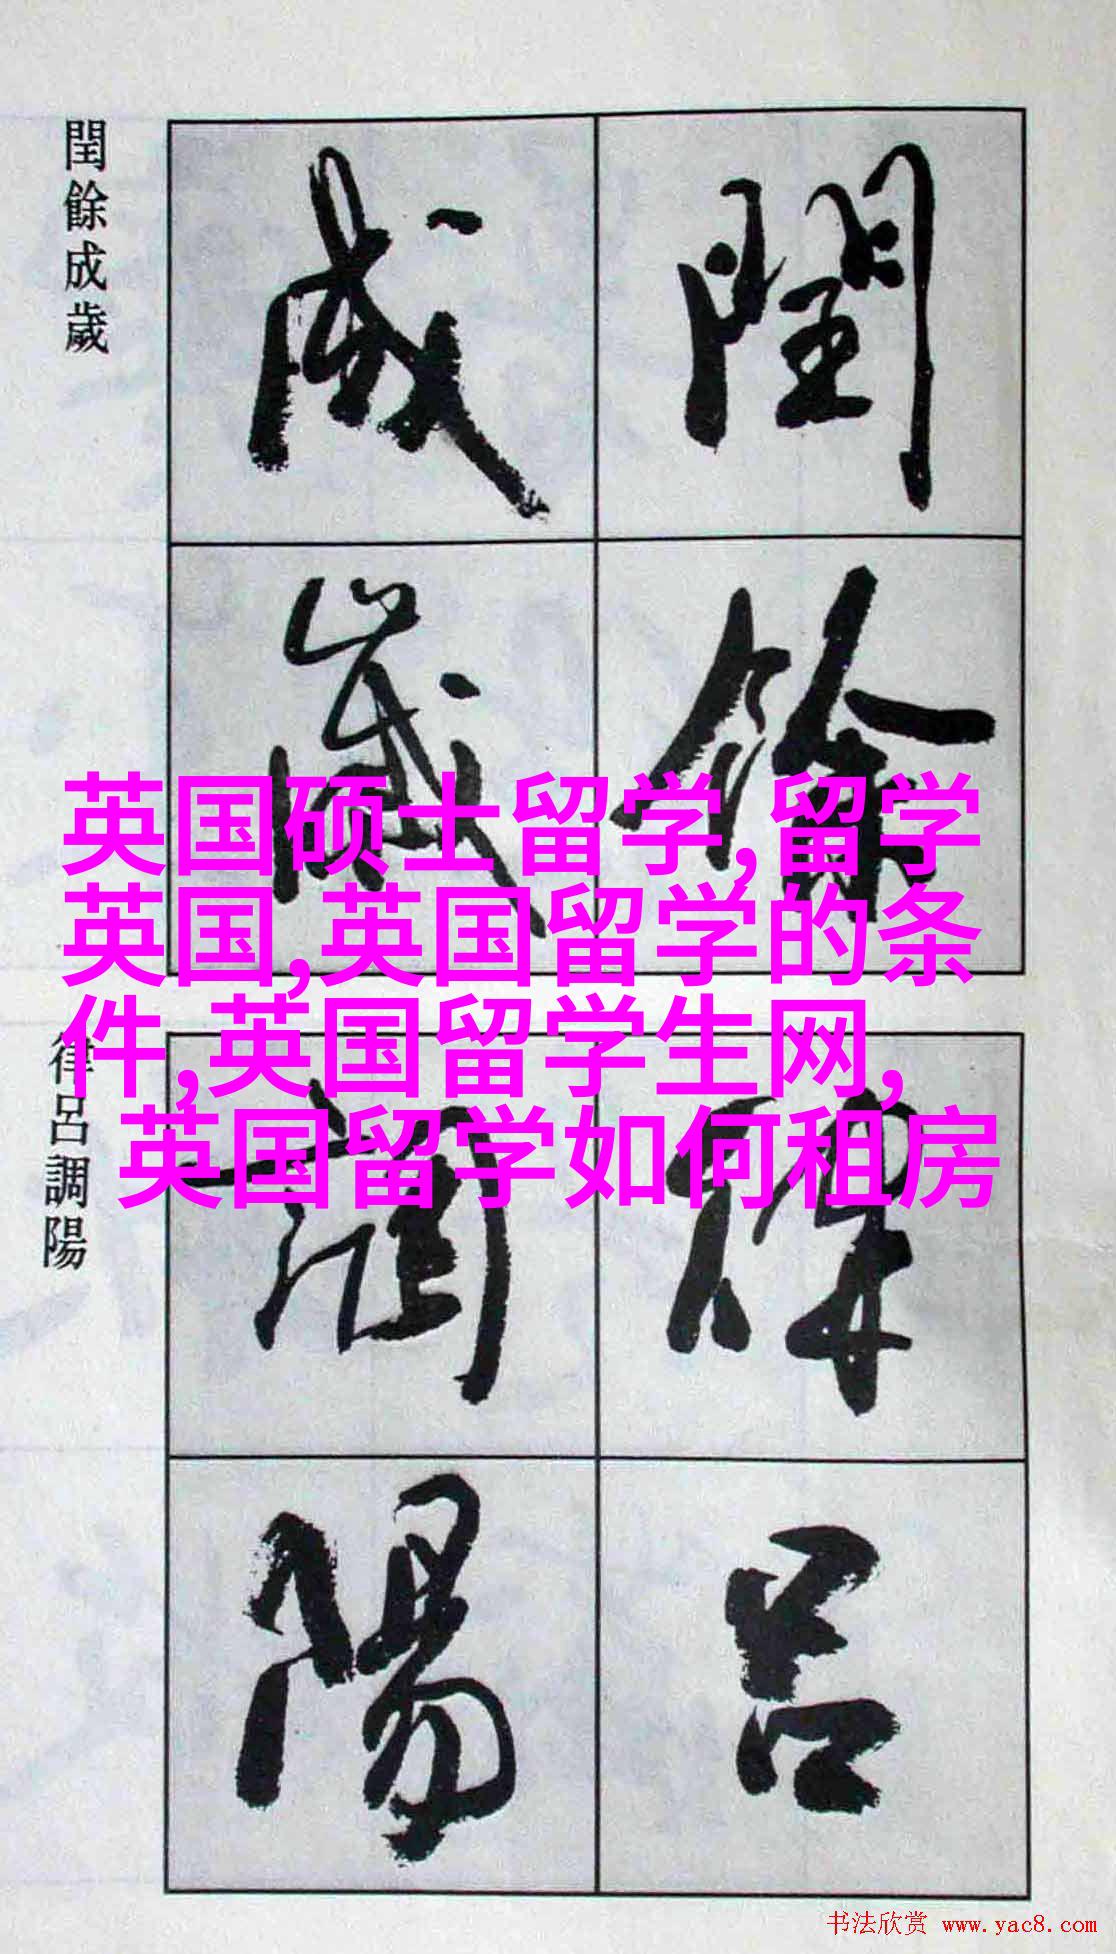 閏餘成歲
閏餘
成歲
英国硕士留学,留学
英国,英国留学的条
件,英国留学生网,
英国留学如何租房
律呂調陽
律呂
調陽
书法欣赏 www.yac8.com